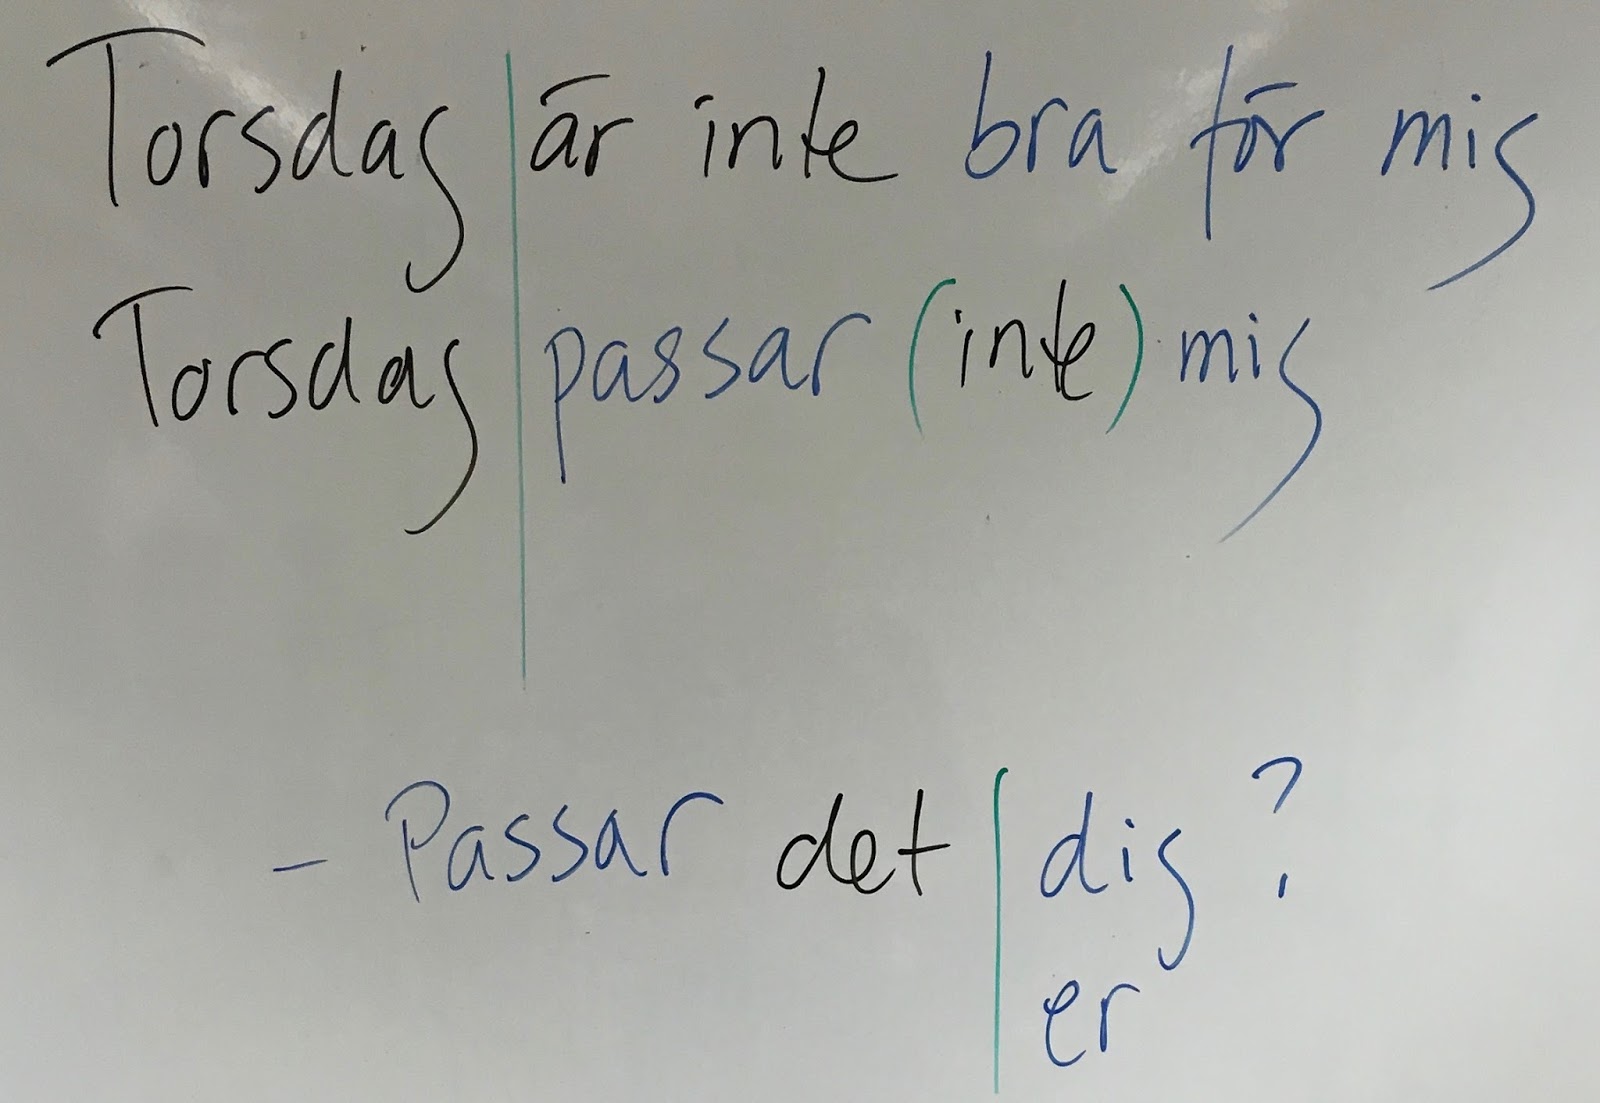 Torsdag är inte bra för mig
Torsdag passar (inte) mig
- Passar det dig?
er